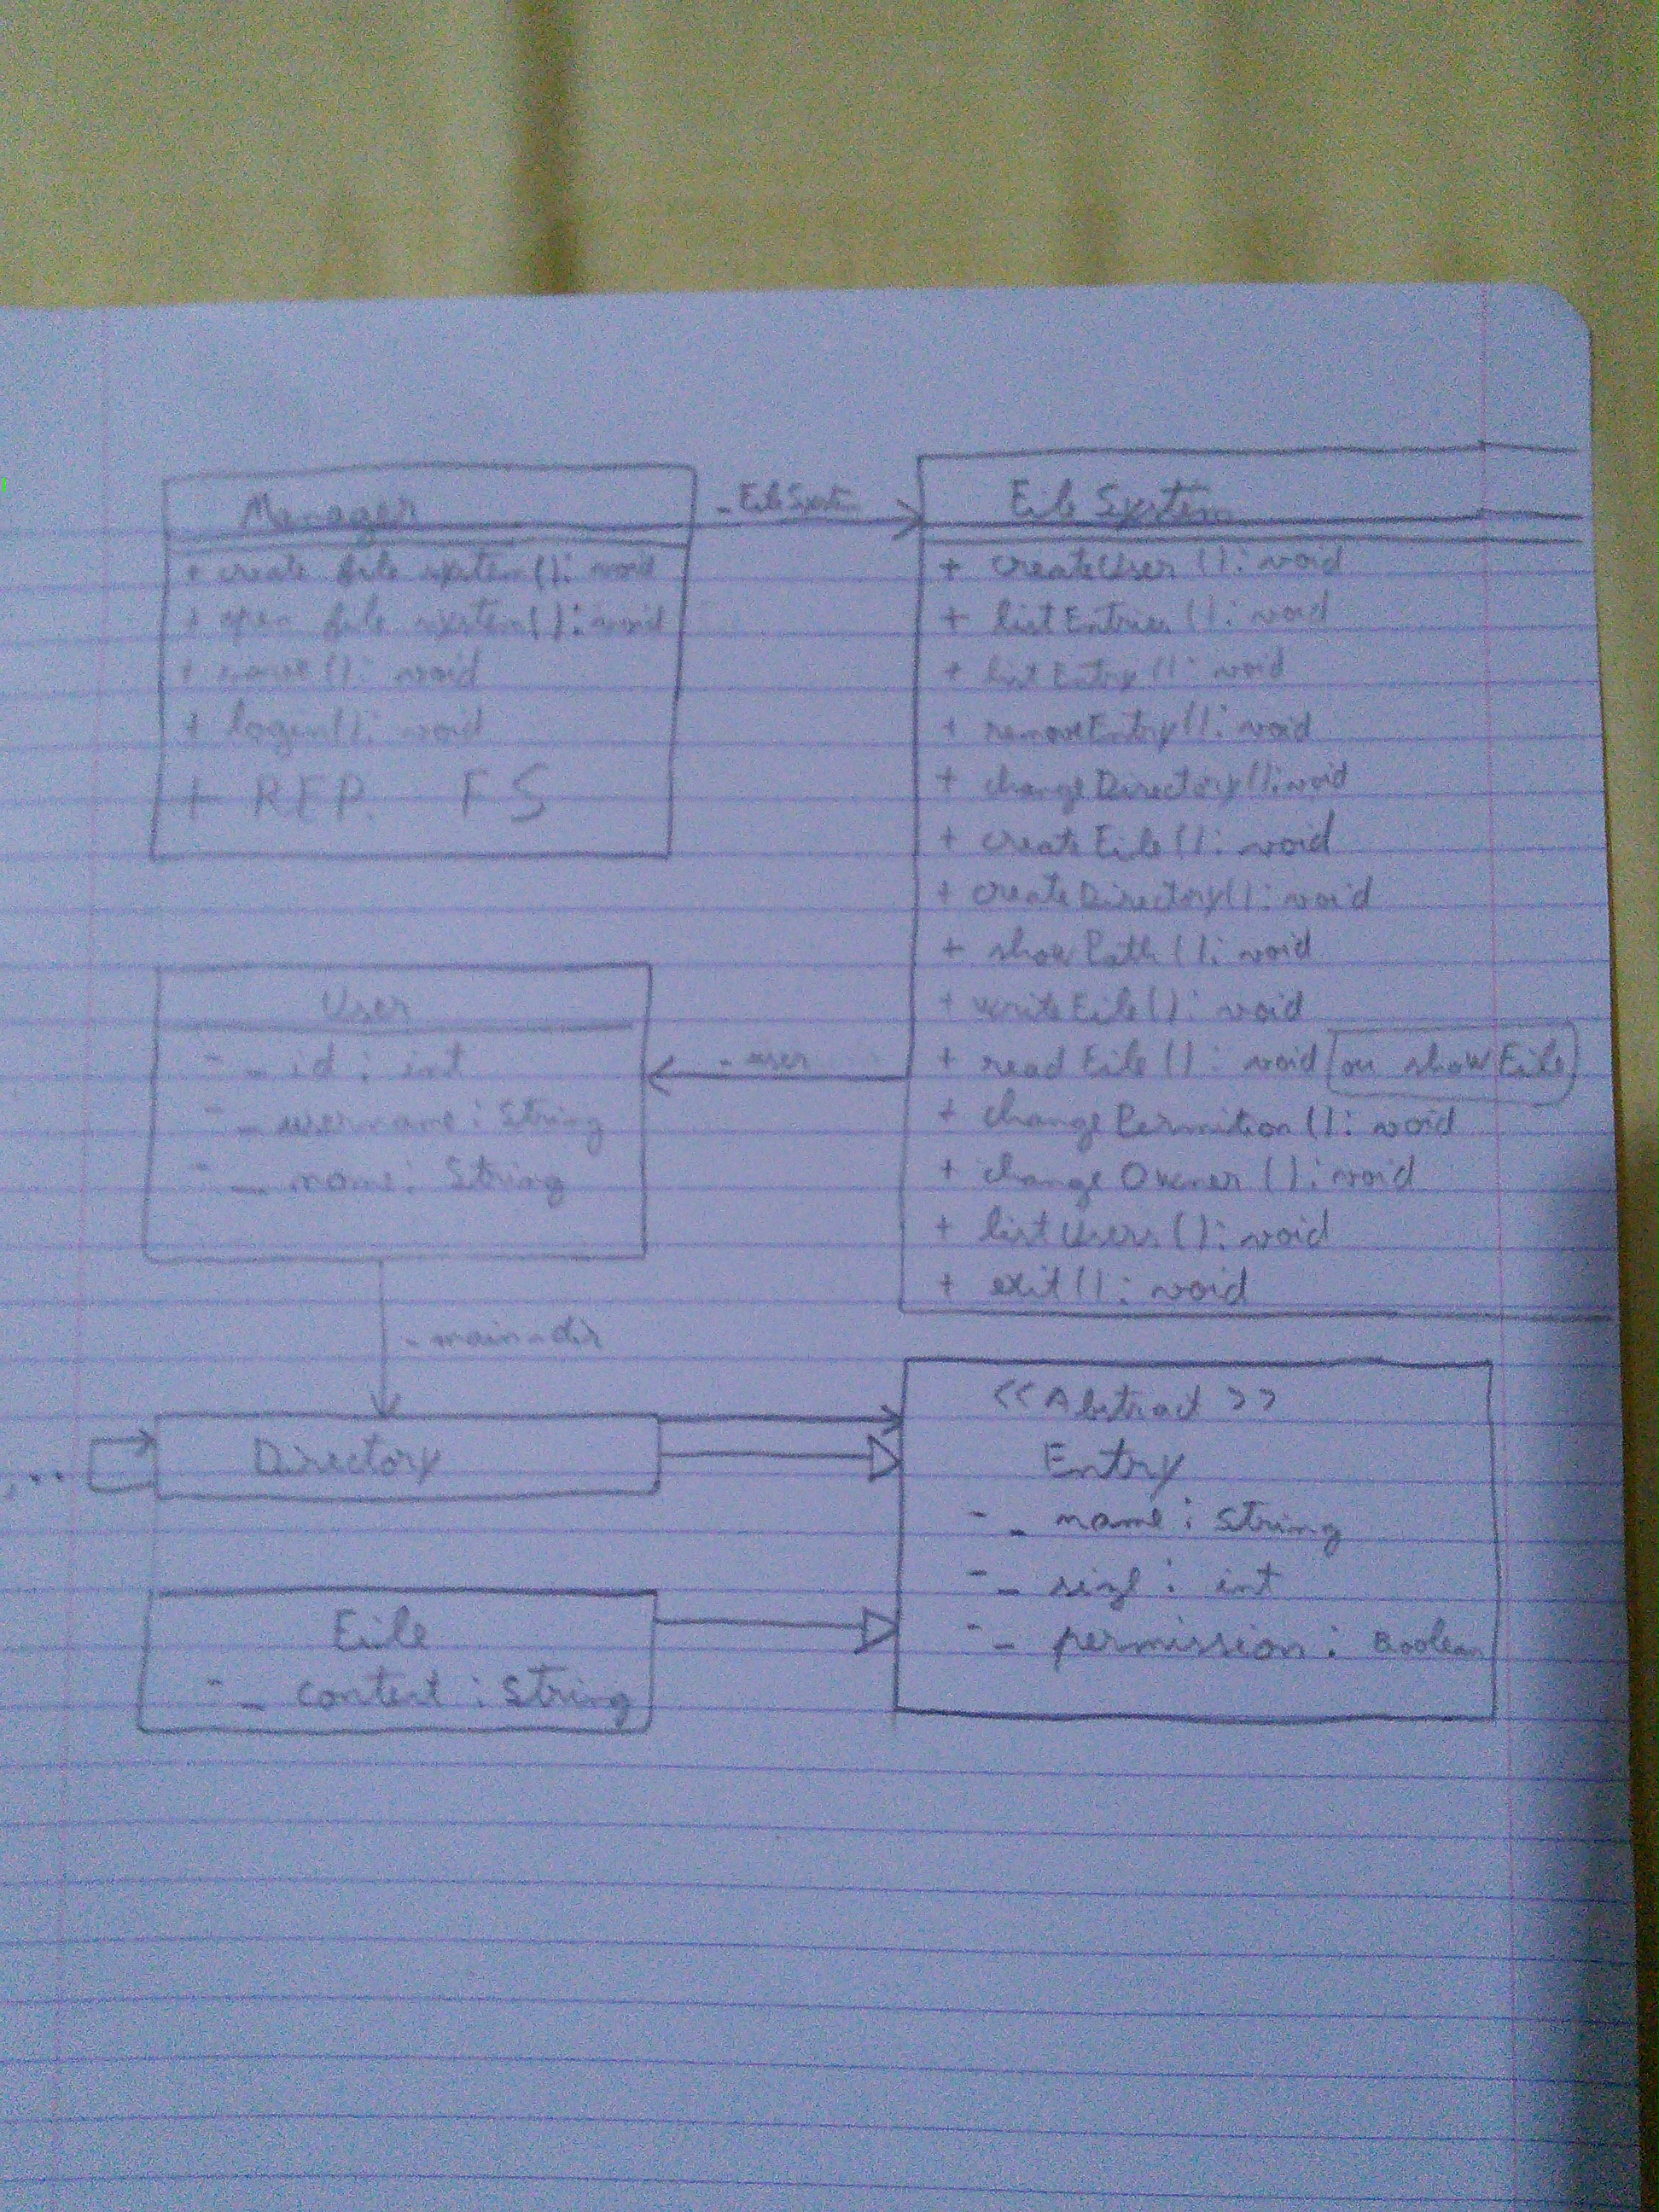 Manager
+ create file system(): void
+ open file system(): void
+ save(): void
+ login(): void
+ REP. FS
- FileSystem
File System
+ createUser(): void
+ listEntries(): void
+ listEntry(): void
+ removeEntry(): void
+ changeDirectory(): void
+ createFile(): void
+ createDirectory(): void
+ showPath(): void
+ writeFile(): void
+ readFile(): void ou showFile
+ changePermition(): void
+ changeOwner(): void
+ listUsers(): void
+ exit(): void
User
- _ id : int
- _ username : String
- _ name : String
- user
- main-dir
Directory
..
<< Abstract >>
Entry
- _ name : String
- _ size : int
- _ permission : Boolean
File
- _ content : String